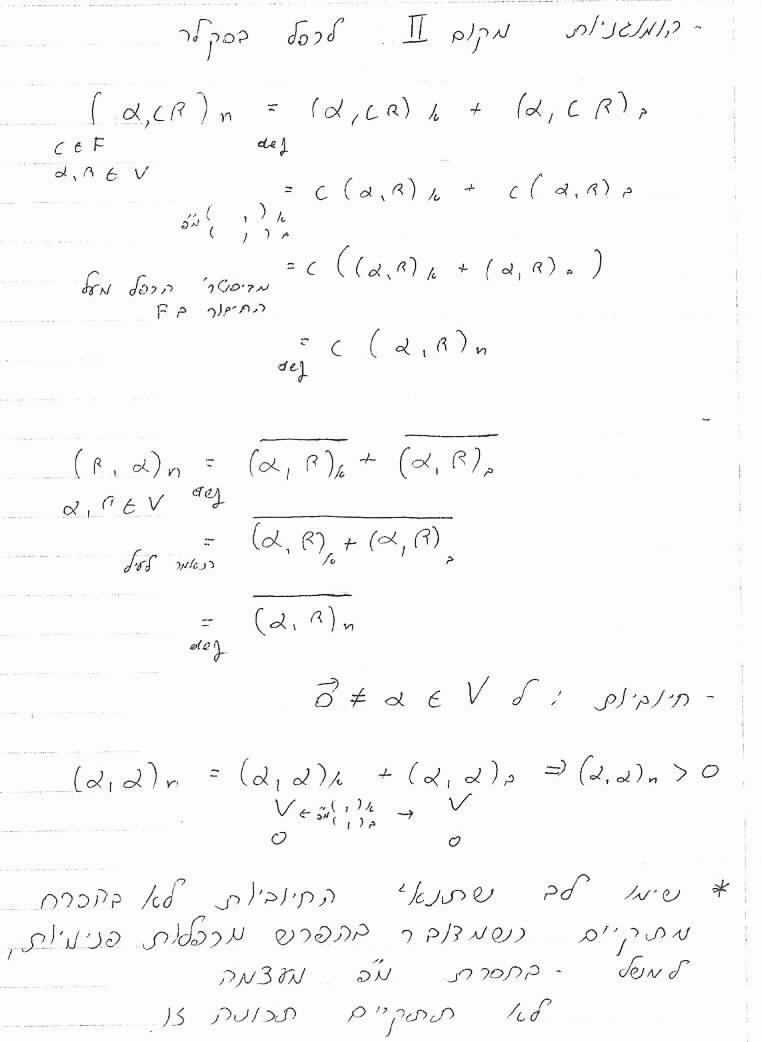 - הומוגניות מקום II לכפל בסקלר
(α, cβ)ₙ = (α, cβ)ₖ + (α, cβ)ₚ
c ∈ F def
α, β ∈ V
= c(α, β)ₖ + c(α, β)ₚ
( , )ₖ מ"פ
( , )ₚ
= c((α, β)ₖ + (α, β)ₚ)
הכפל מעל
החיבור ב F
= c(α, β)ₙ
def
-
(β, α)ₙ = \overline{(α, β)ₖ} + \overline{(α, β)ₚ}
α, β ∈ V def
= \overline{(α, β)ₖ + (α, β)ₚ}
כנאמר לעיל
= \overline{(α, β)ₙ}
def
- חיוביות : לכל 0⃗ ≠ α ∈ V
(α, α)ₙ = (α, α)ₖ + (α, α)ₚ ⇒ (α, α)ₙ > 0
V ← ( , )ₖ מ"פ → V
0 ( , )ₚ 0
* שימו לב שתנאי החיוביות לא בהכרח
מתקיים כשמדובר בהפרש מכפלות פנימיות,
למשל - בחסרת מ"פ מעצמה
לא תתקיים תכונה זו.